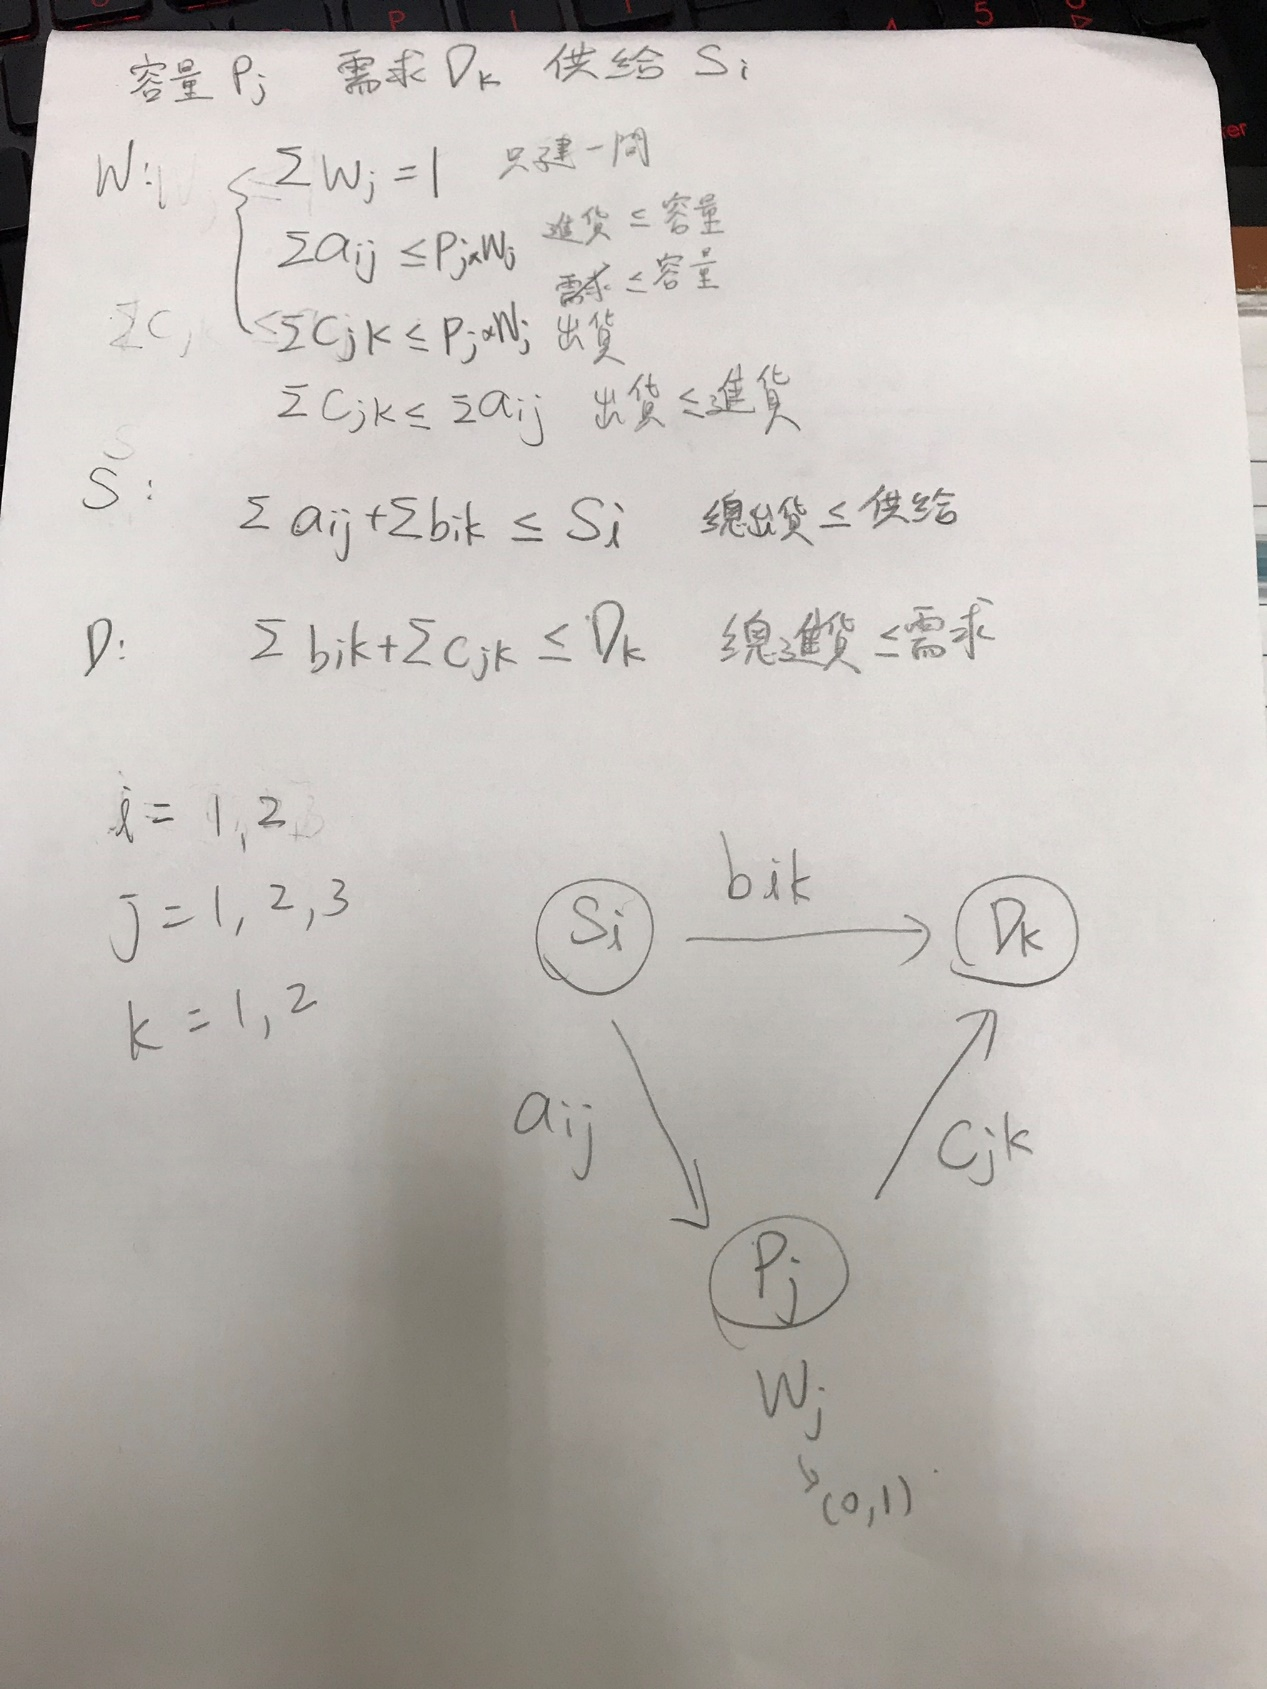 容量 Pj 需求 Dk 供給 Si
W: ΣWj = 1 只建一間
Σaij ≤ Pj×Wj 進貨 ≤ 容量
需求 ≤ 容量
ΣCjk ≤ Pj×Wj 出貨
ΣCjk ≤ Σaij 出貨 ≤ 進貨
S: Σaij + Σbik ≤ Si 總出貨 ≤ 供給
D: Σbik + ΣCjk ≤ Dk 總進貨 ≤ 需求
i = 1, 2
j = 1, 2, 3
k = 1, 2
bik
Si
Dk
aij
Cjk
Pj
Wj
(0,1)